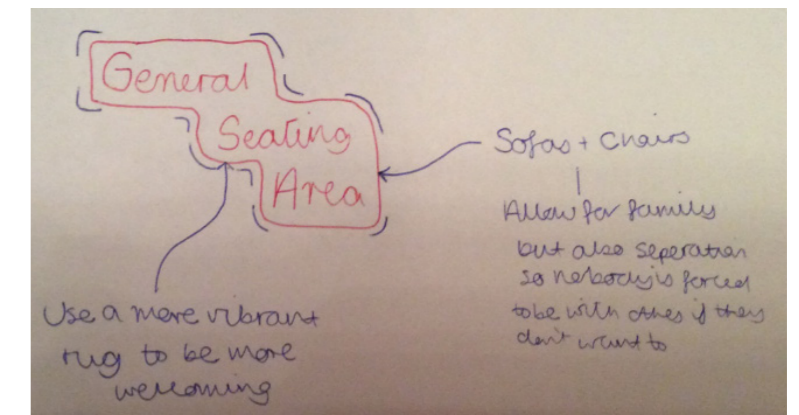 General
Seating
Area
Sofas + Chairs
Allow for family
but also seperation
so nobody is forced
to be with othes if they
don't want to
Use a more vibrant
rug to be more
welcoming